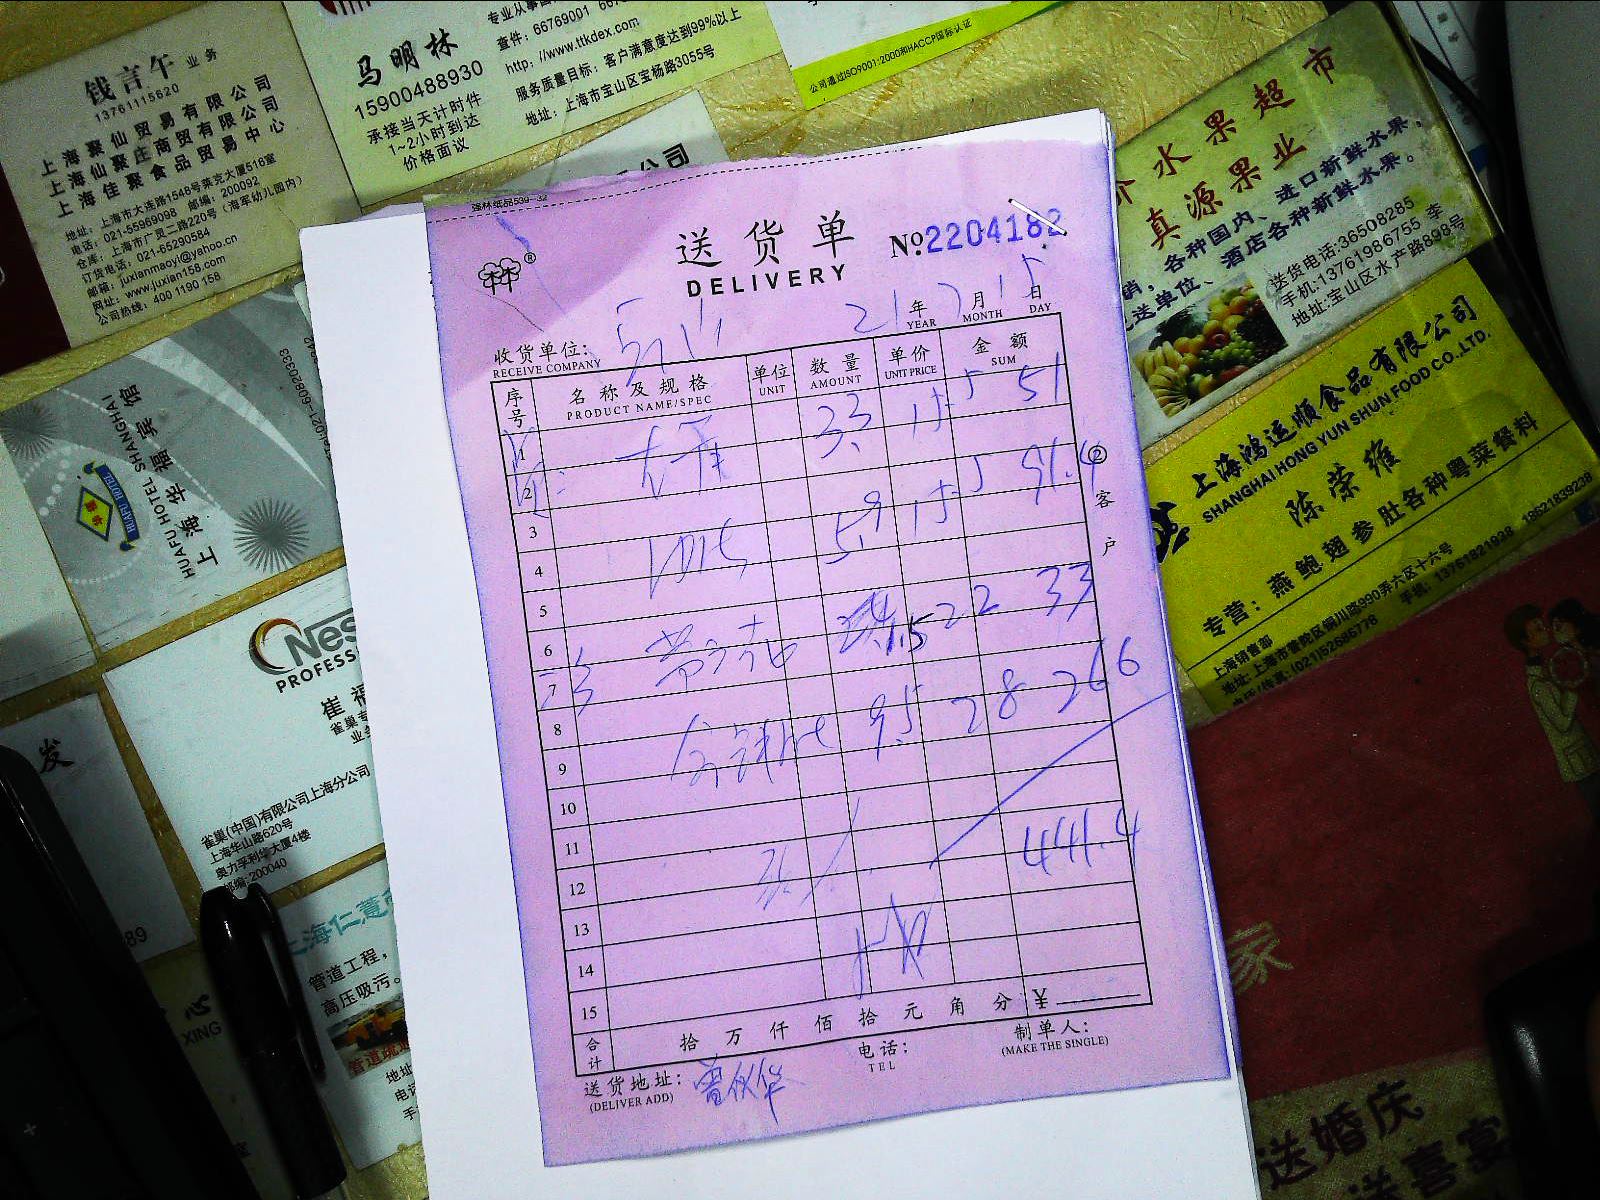 钱言午 业务
13761115620
上海聚仙贸易有限公司
上海仙聚庄商贸有限公司
上海佳聚食品贸易中心
地址：上海市大连路1548号莱克大厦518室
电话：021-55969098 邮编：200092
仓库：上海市广灵二路220号（海军幼儿园内）
订货电话：021-65290584
邮箱：juxianmaoyi@yahoo.cn
网址：www.juxian158.com
公司热线：400 1190 158
马明林
15900488930
承接当天计时件
1~2小时到达
价格面议
查件：66769001
http://www.ttkdex.com
服务质量目标：客户满意度达到99%以上
地址：上海市宝山区宝杨路3055号
公司通过ISO9001:2000和HACCP国际认证
水果超市
真源果业
各种国内、进口新鲜水果，
送单位、酒店各种新鲜水果。
送货电话:36508285
手机:13761986755 李
地址:宝山区水产路898号
上海鸿运顺食品有限公司
SHANGHAI HONG YUN SHUN FOOD CO.,LTD.
陈荣维
专营：燕鲍翅参肚各种粤菜餐料
上海销售部
地址:上海市普陀区铜川路990弄六区十六号
(021)52685778
手机：13761821928 18621839238
上海华福宾馆
HUAFU HOTEL SHANGHAI
Nes
PROFESS
崔福
雀巢专
业务
雀巢(中国)有限公司上海分公司
上海华山路620号
奥力孚利华大厦4楼
邮编:200040
发
89
心
XING
上海仁慧
管道工程，
高压吸污。
管道疏通
地址
电话
公司
强林纸品539-32
林®
送货单
DELIVERY
№2204182
21年 月15日
YEAR MONTH DAY
收货单位：
RECEIVE COMPANY
序号 名称及规格 单位 数量 单价 金额
PRODUCT NAME/SPEC UNIT AMOUNT UNIT PRICE SUM
1 3.3 15.5 51
2
3 5.9 15.5 91.4
4
5 1.5 22 33
6
7
8 9.5 28 266
9
10
11 441.4
12
13
14
15
合计 拾 万 仟 佰 拾 元 角 分 ¥
② 客户
送货地址：
(DELIVER ADD)
电话：
TEL
制单人：
(MAKE THE SINGLE)
家
送婚庆
送喜宴